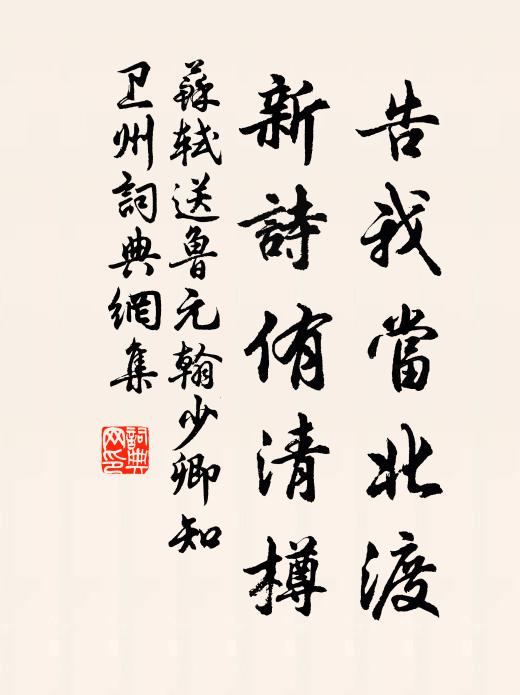 告我當北渡
新詩侑清樽
蘇軾送魯元翰少卿知
卫州詞典網集
詞典网印